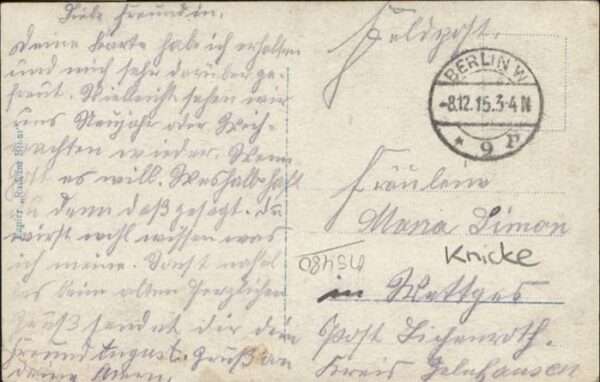 Liebe Freundin.
Deine Karte habe ich erhalten
und mich sehr darüber ge-
freut. Vielleicht sehen wir
uns Neujahr oder Weih-
nachten wieder. Wenn
Gott es will. Weshalb hast
du denn daß gesagt. Du
wirst wohl wissen was
ich meine. Sonst
es beim alten Herzlichen
Gruß sendet dir dein
Freund August. Gruß an
deine Eltern.
Feldpost.
BERLIN W
-8.12.15.3-4N
* 9 P
Fräulein
Maria Simon
Knicke
in Wettges
Post Lichenroth.
Kreis Gelnhausen